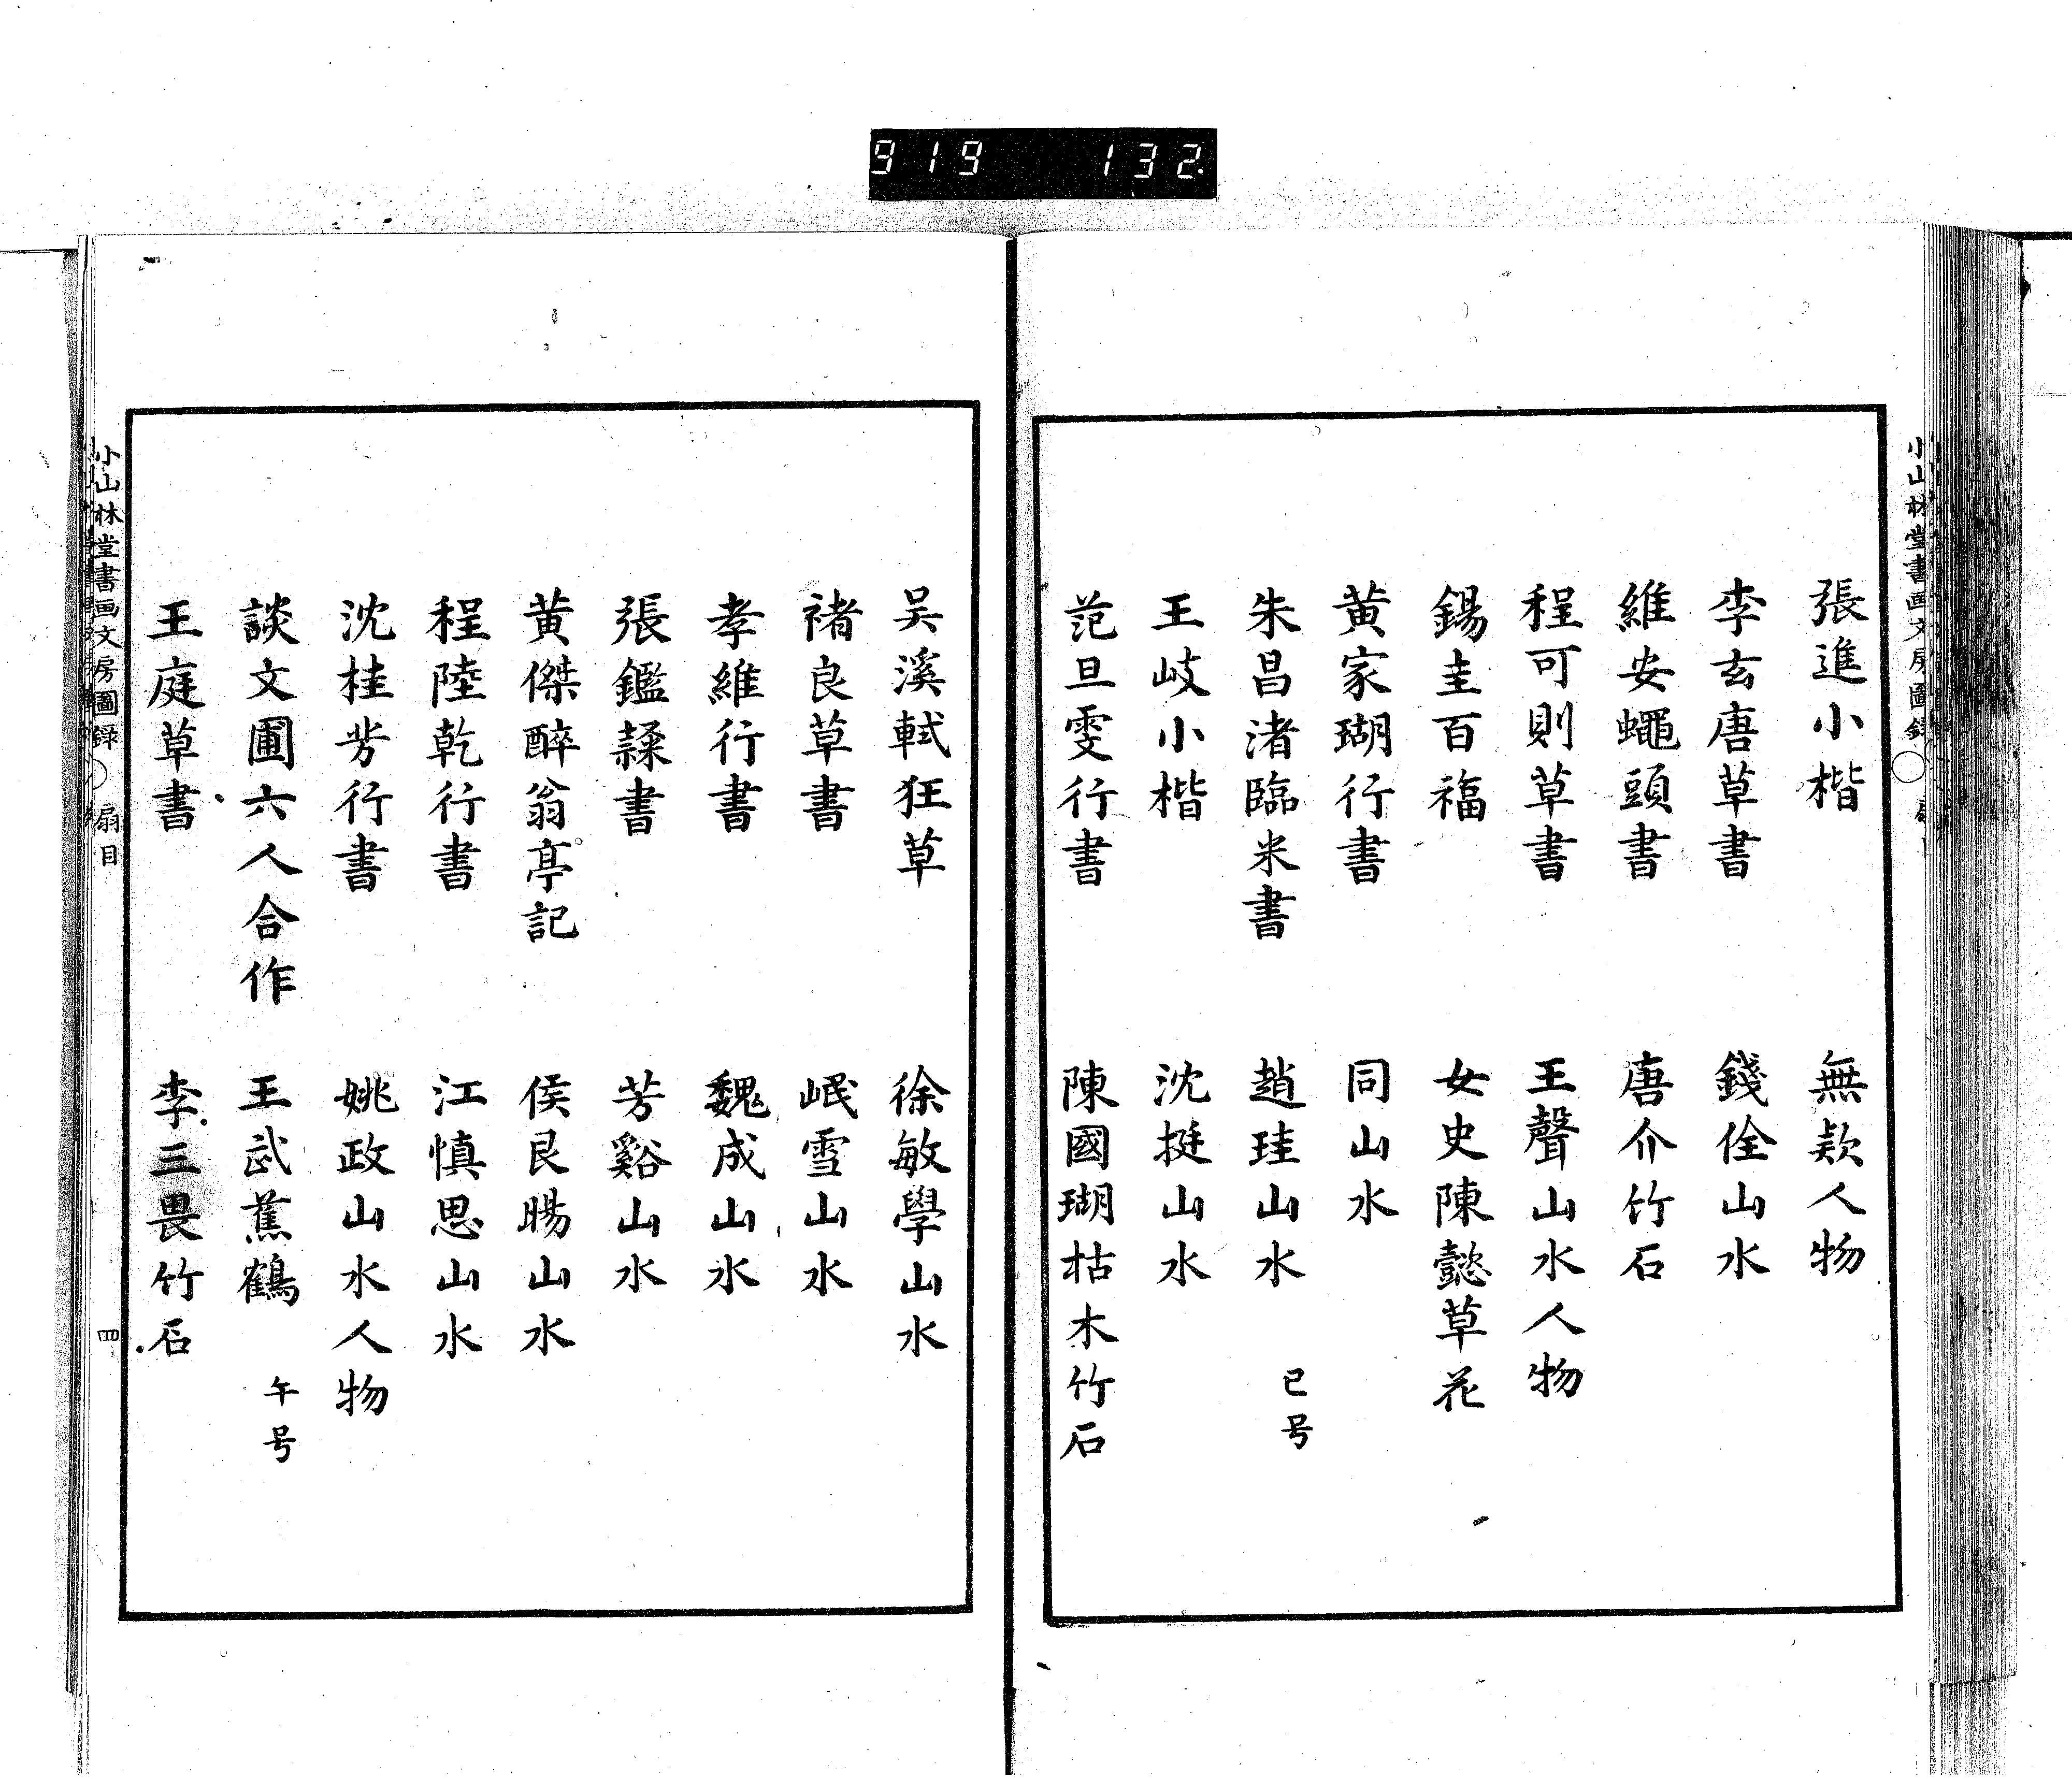 919 132
小山林堂書画文房圖録
張進小楷 無欵人物
李玄唐草書 錢佺山水
維安蠅頭書 唐介竹石
程可則草書 王聲山水人物
錫圭百福 女史陳懿草花
黄家瑚行書 同山水
朱昌渚臨米書 趙珪山水 巳号
王岐小楷 沈挺山水
范旦雯行書 陳國瑚枯木竹石
吴溪軾狂草 徐敏學山水
褚良草書 岷雪山水
孝維行書 魏成山水
張鑑隸書 芳谿山水
黄傑醉翁亭記 侯艮暘山水
程陸乾行書 江慎思山水
沈桂芳行書 姚政山水人物
談文圃六人合作 王武蕉鶴 午号
王庭草書 李三畏竹石
小山林堂書画文房圖録 扇目 四